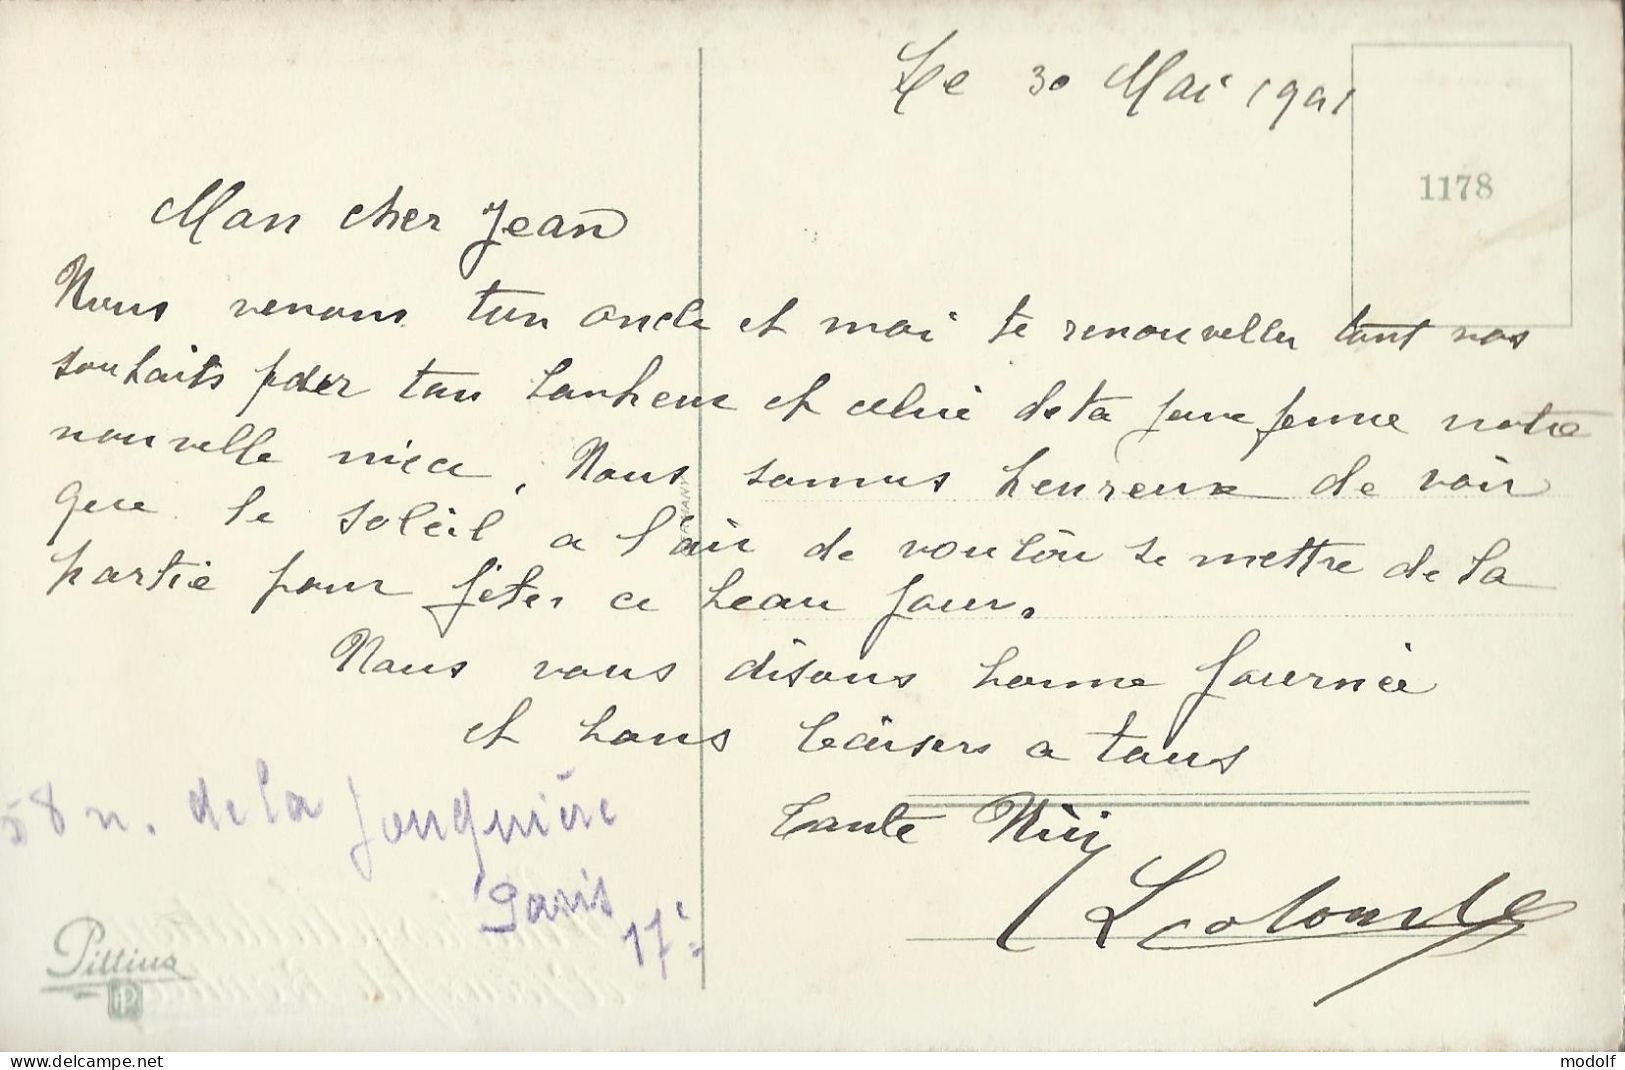 Le 30 Mai 1941
1178
Mon cher Jean
Nous venons ton oncle et moi te renouveller tout nos
souhaits pour ton bonheur et celui de ta jeune femme notre
nouvelle niece. Nous sommes heureux de voir
que le soleil a l'air de vouloir se mettre de la
partie pour fêter ce beau jour.
Nous vous disons bonne journée
et bons baisers a tous
Tante
58 r. de la Jonquière
Paris
17e
Pittius
delcampe.net
modolf